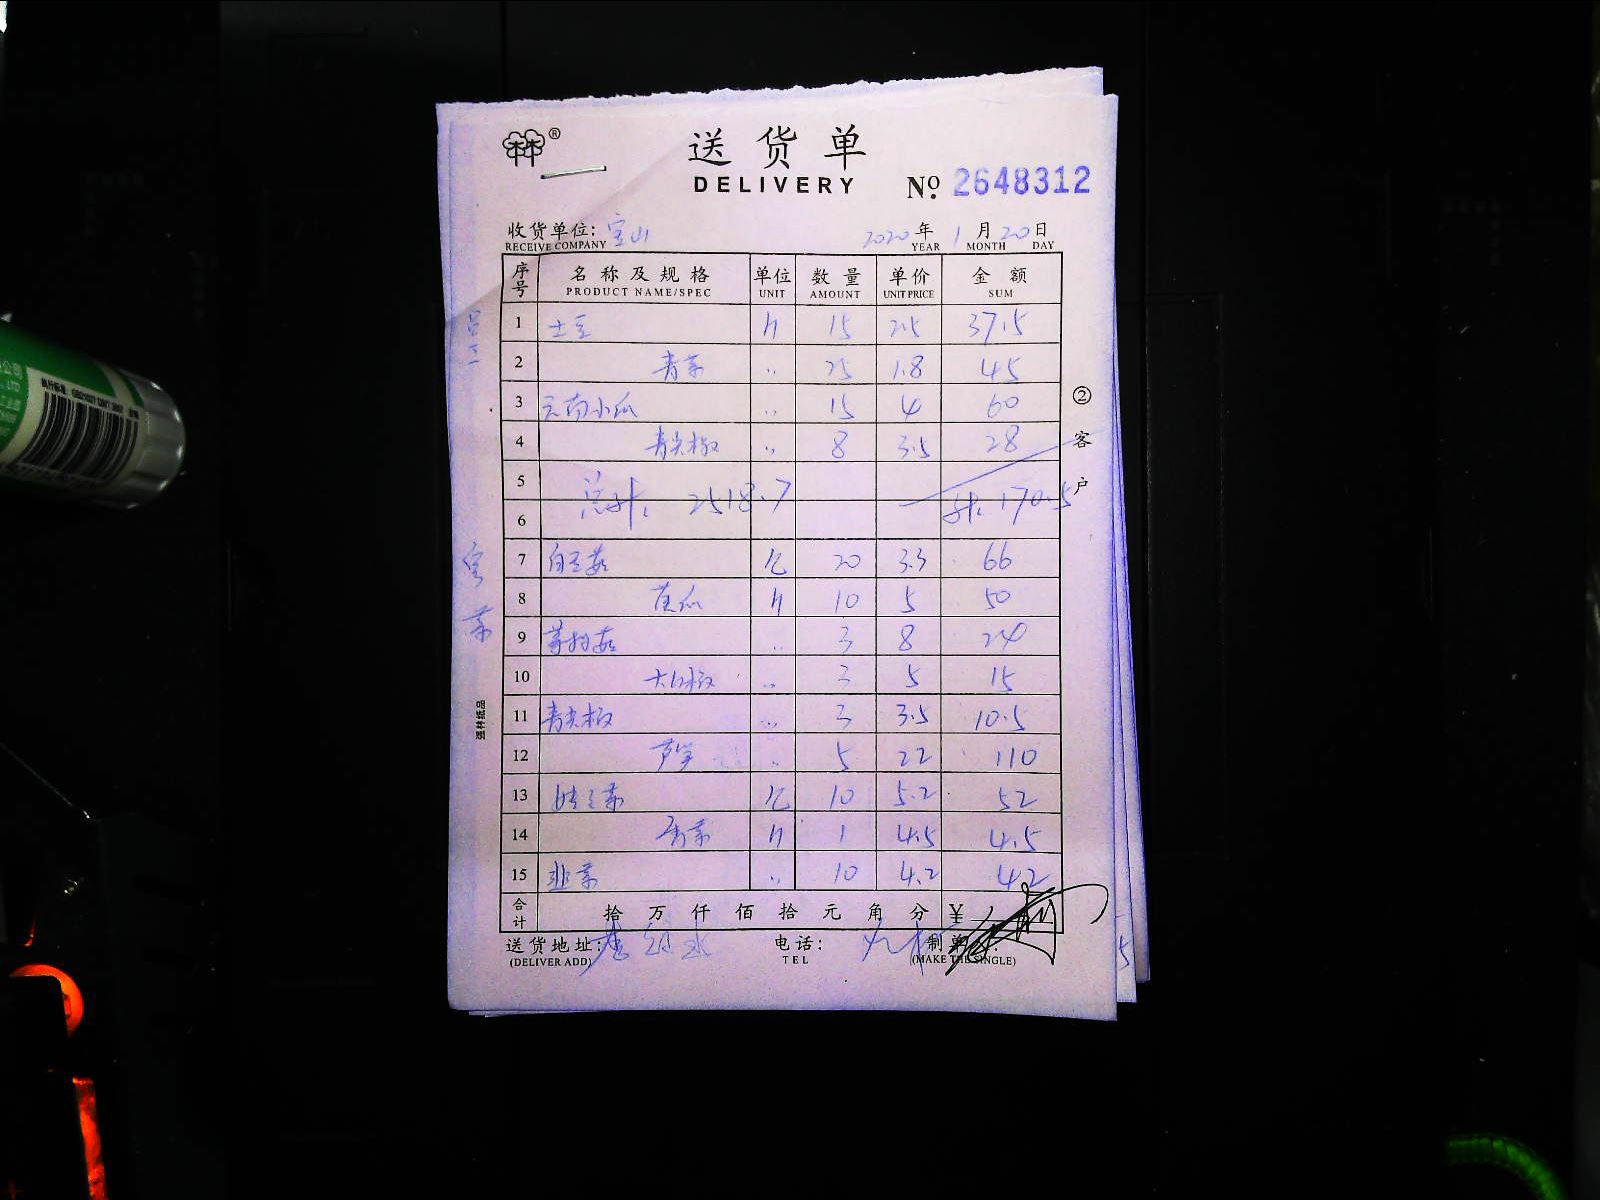 ®
送货单
DELIVERY
№ 2648312
收货单位: 宝山 2020年 1月 20日
RECEIVE COMPANY YEAR MONTH DAY
序号 名称及规格 单位 数量 单价 金额
PRODUCT NAME/SPEC UNIT AMOUNT UNIT PRICE SUM
员工
1 土豆 斤 15 2.5 37.5
2 青菜 〃 25 1.8 45
3 云南小瓜 〃 15 4 60
4 青尖椒 〃 8 3.5 28
5
总计: 2518.7 计: 170.5
6
7 白玉菇 包 20 3.3 66
8 黄瓜 斤 10 5 50
9 茶树菇 〃 3 8 24
10 大红椒 〃 3 5 15
11 青尖椒 〃 3 3.5 10.5
12 芦笋 〃 5 22 110
13 娃娃菜 包 10 5.2 52
14 香菜 斤 1 4.5 4.5
15 韭菜 〃 10 4.2 42
合计 拾万仟佰拾元角分 ¥
送货地址: 电话: 制单
(DELIVER ADD) TEL (MAKE THE SINGLE)
②客户
客菜
强林纸品